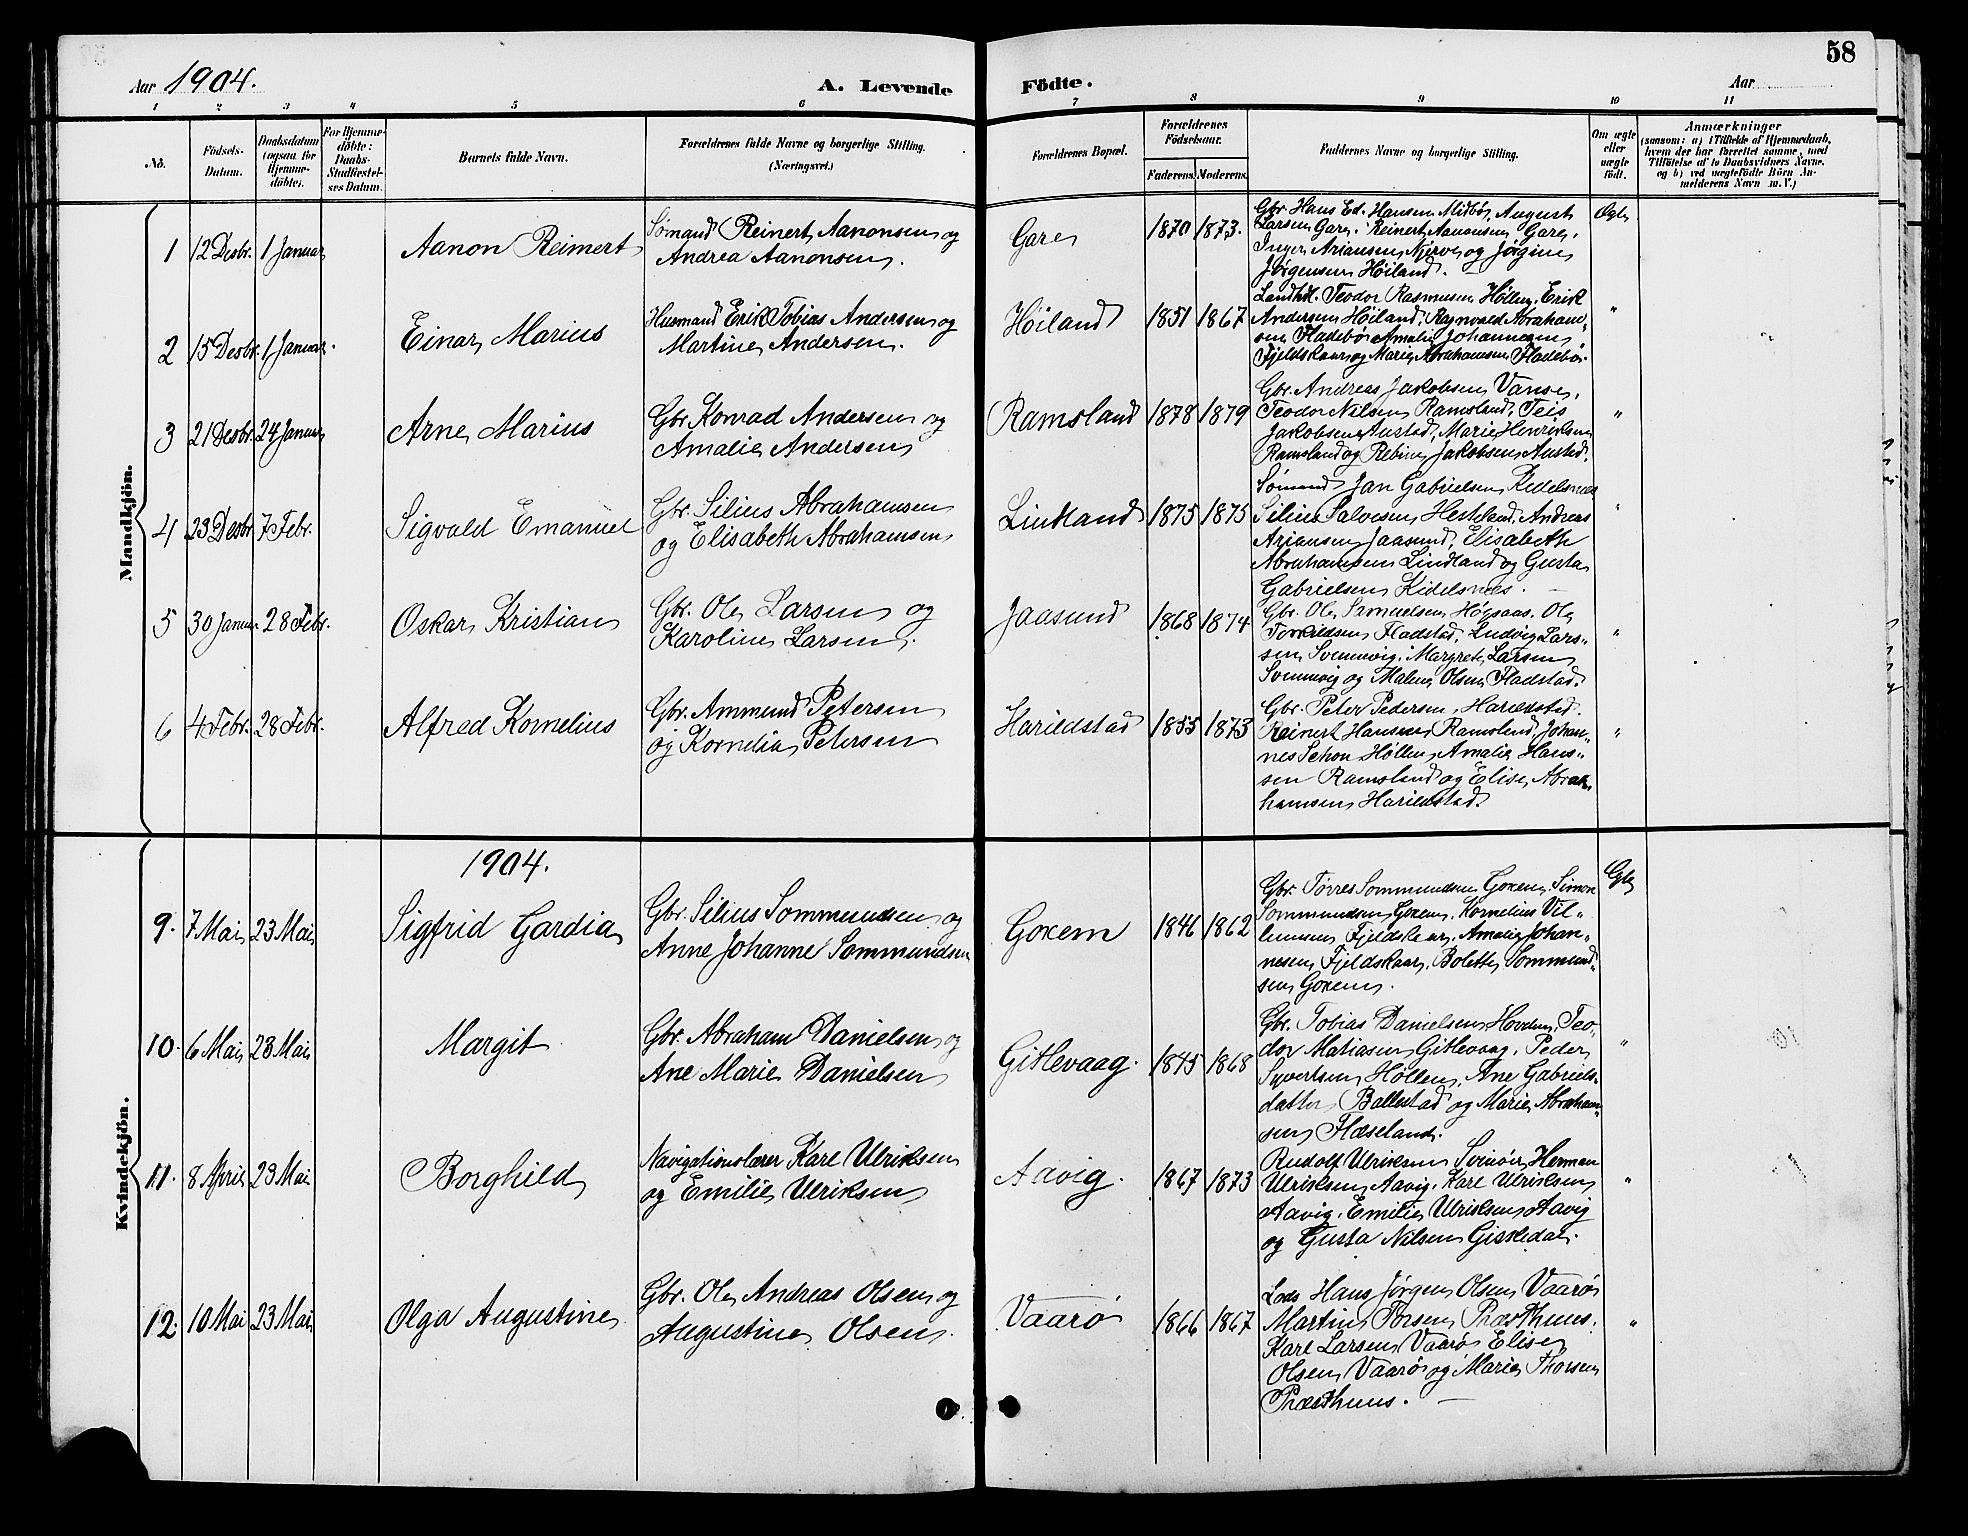 58
Aar 1904.
A. Levende Fødte.
Aar
1 2 3 4 5 6 7 8 9 10 11
No.
Fødsels-Datum.
Daabsdatum (ogsaa for Hjemme-døbte).
For Hjemme-døbte: Daabs-Stadfæstel-ses Datum.
Barnets fulde Navn.
Forældrenes fulde Navne og borgerlige Stilling. (Næringsvei.)
Forældrenes Bopæl.
Forældrenes Fødselsaar.
Faderens. Moderens.
Faddernes Navne og borgerlige Stilling.
Om ægte eller uægte født.
Anmærkninger
(saasom: a) i Tilfælde af Hjemmedaab, hvem der har forrettet samme, med Tilføielse af to Daabsvidners Navne, og b) ved uægtefødte Børn An-melderens Navn m. V.)
Mandkjøn.
1 12 Desbr. 1 Januar
Aanon Reinert
Sømand Reinert Aanonsen og
Andrea Aanonsen.
Gare
1870 1873.
Gbr. Hans Ed. Hansen Midbø, August
Larsen Gare, Reinert Aanonsen Gare,
Inger Ariansen Njerve og Jørgine
Jørgensen Høiland.
Ægte
2 15 Desbr. 1 Januar.
Einar Marius
Husmand Erik Tobias Andersen og
Martine Andersen.
Høiland
1851 1867
Landhdl. Teodor Rasmussen Høllen, Erik
Andersen Høiland, Ragnvald Abraham-
sen Fladebø, Amalie Johannesen
Fjeldskaar og Marie Abrahamsen Fladebø.
"
3 21 Desbr. 24 Januar
Arne Marius
Gbr. Konrad Andersen og
Amalie Andersen
Ramsland
1878 1879
Gbr. Andreas Jakobsen Vanse,
Teodor Nilsen Ramsland, Teis
Jakobsen Austad, Marie Henriksen
Ramsland og Rebine Jakobsen Austad.
"
4 23 Desbr. 7 Febr.
Sigvald Emanuel
Gbr. Silius Abrahamsen
og Elisabeth Abrahamsen
Lindland
1875 1875
Sømand Jan Gabrielsen Kidelsnes
Silius Salvesen Hesteland, Andreas
Ariansen Jaasund, Elisabeth
Abrahamsen Lindland og Gusta
Gabrielsen Kidelsnes.
"
5 30 Januar. 28 Febr.
Oskar Kristian
Gbr. Ole Larsen og
Karoline Larsen.
Jaasund
1868 1874
Gbr. Ole Samuelsen Høgsaas, Ole
Torkildsen Fladstad, Ludvig Lars-
sen Svennevig, Margrete Larsen
Svennevig og Malene Olsen Fladstad.
"
6 4 Febr. 28 Febr.
Alfred Kornelius
Gbr. Ammund Petersen
og Kornelia Petersen
Harildstad
1855 1873
Gbr. Peter Pedersen Harildstad.
Reinert Hansen Ramsland, Johan-
nes Schon Høllen, Amalie Hans-
sen Ramsland og Elise Abra-
hamsen Harildstad.
"
Kvindekjøn.
1904.
9. 7 Mai 23 Mai
Sigfrid Gardia
Gbr. Silius Sommundsen og
Anne Johanne Sommundsen
Goxem
1846 1862
Gbr. Tørres Sommundsen Goxem, Simon
Sommundsen Goxem, Kornelius Vil-
lumsen Fjeldskaar, Amalie Johan-
nesen Fjeldskaar, Bolette Sommund-
sen Goxem.
Ægte
10. 6 Mai 23 Mai
Margit
Gbr. Abraham Danielsen og
Ane Marie Danielsen
Gitlevaag.
1845 1868
Gbr. Tobias Danielsen Hovden, Teo-
dor Matiasen Gitlevaag, Peder
Syvertsen Høllen, Ane Gabriels-
datter Ballestad og Marie Abraham-
sen Flæseland.
"
11. 8 April 23 Mai
Borghild
Navigationslærer Karl Ulriksen
og Emilie Ulriksen
Aavig.
1867 1873
Rudolf Ulriksen Svinør, Herman
Ulriksen Aavig, Karl Ulriksen
Aavig, Emilie Ulriksen Aavig
og Gusta Nilsen Gisledal.
"
12. 10 Mai 23 Mai
Olga Augustine
Gbr. Ole Andreas Olsen og
Augustine Olsen.
Vaarø
1866 1867
Lods Hans Jørgen Olsen Vaarø
Martin Torsen Præsthuus,
Karl Larsen Vaarø, Elise
Olsen Vaarø og Marie Thorsen
Præsthuus.
"